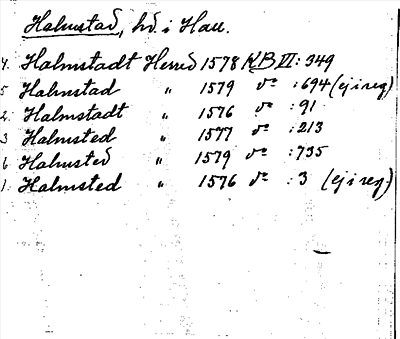 Halmstad, hd. i Hall.
4. Halmstadt Herred 1578 KB VI: 349
5 Halmstad " 1579 do : 694 (ej i reg)
2. Halmstadt " 1576 do : 91
3 Halmsted " 1577 do : 213
6 Halmsted " 1579 do : 735
1. Halmsted " 1576 do : 3 (ej i reg.)